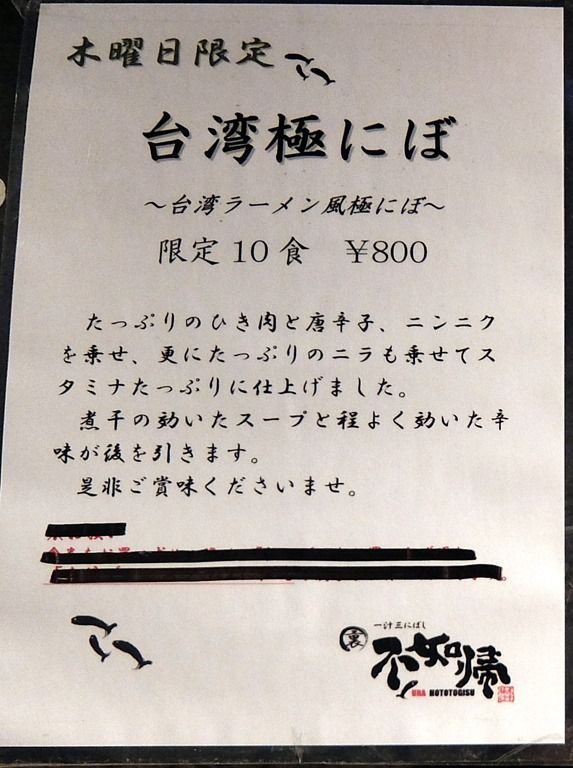 木曜日限定
台湾極にぼ
～台湾ラーメン風極にぼ～
限定10食　￥800
たっぷりのひき肉と唐辛子、ニンニク
を乗せ、更にたっぷりのニラも乗せてス
タミナたっぷりに仕上げました。
煮干の効いたスープと程よく効いた辛
味が後を引きます。
是非ご賞味くださいませ。
一汁三にぼし
裏
不如帰
URA HOTOTOGISU